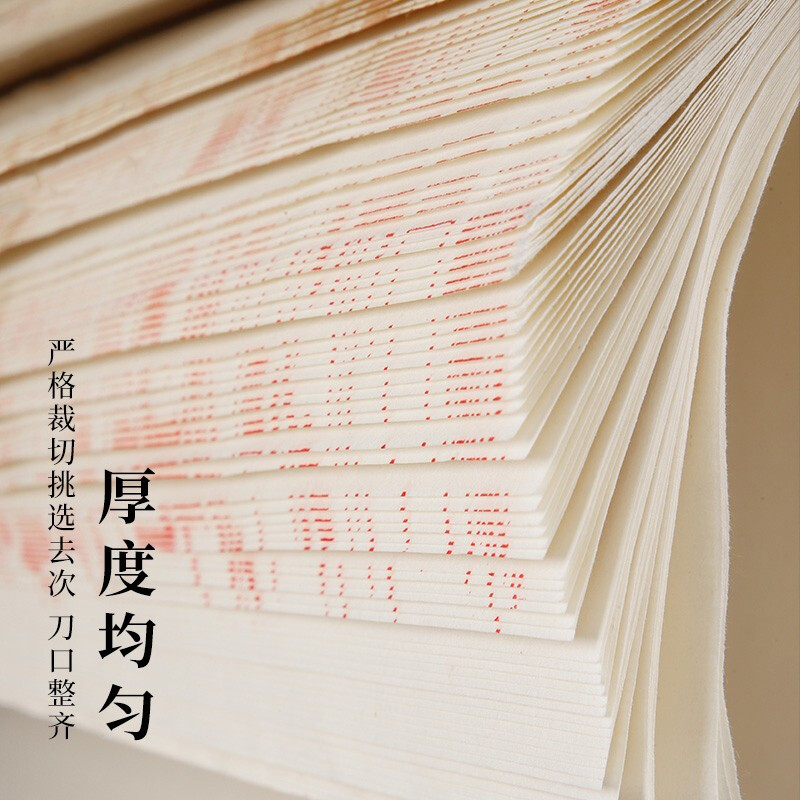 厚度均匀
严格裁切挑选去次 刀口整齐